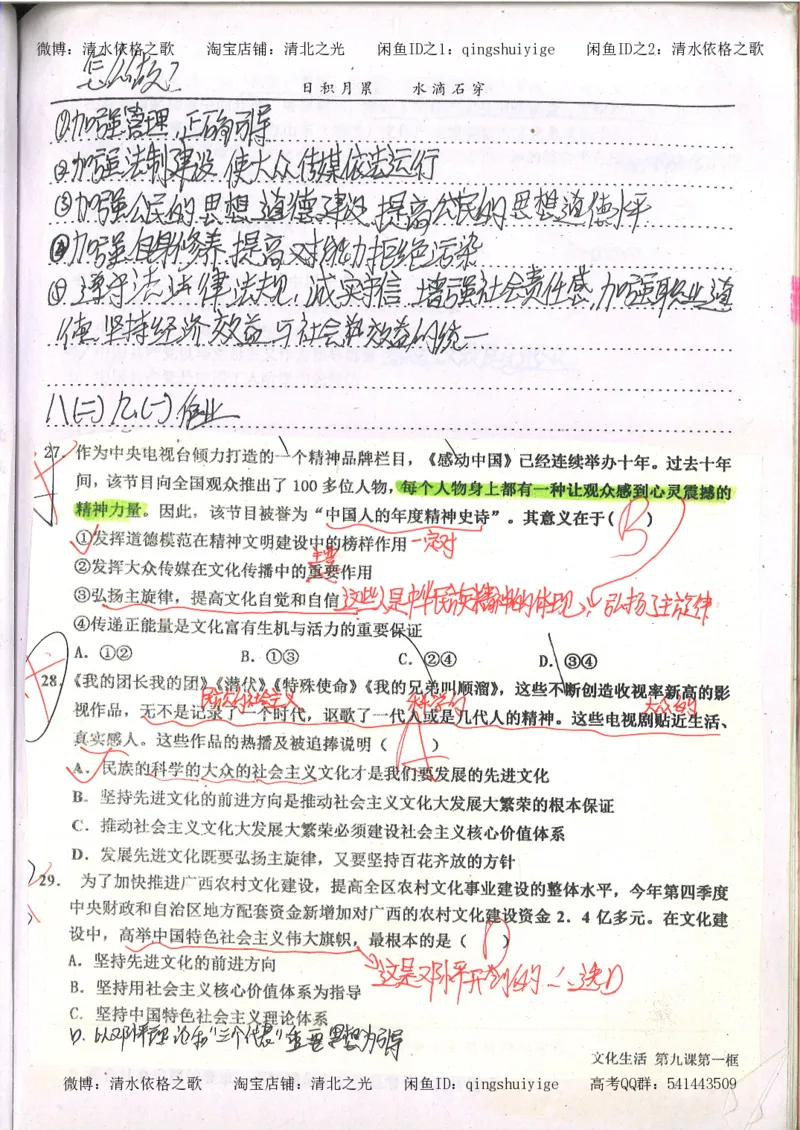 微博：清水依格之歌 淘宝店铺：清北之光 闲鱼ID之1：qingshuiyige 闲鱼ID之2：清水依格之歌
怎么做？
日积月累 水滴石穿
①加强管理，正确引导
②加强法制建设，使大众传媒依法运行
③加强公民的思想道德建设，提高公民的思想道德水平
④加强自身修养，提高对能力拒绝污染
⑤遵守法法律法规，诚实守信，增强社会责任感，加强职业道
德，坚持经济效益与社会效益的统一
八(二)九(一)作业
27. 作为中央电视台倾力打造的一个精神品牌栏目，《感动中国》已经连续举办十年。过去十年
间，该节目向全国观众推出了 100 多位人物，每个人物身上都有一种让观众感到心灵震撼的
精神力量。因此，该节目被誉为“中国人的年度精神史诗”。其意义在于( B )
①发挥道德模范在精神文明建设中的榜样作用 一定对
②发挥大众传媒在文化传播中的重要作用
③弘扬主旋律，提高文化自觉和自信 这些人是中华民族精神的体现，弘扬了主旋律
④传递正能量是文化富有生机与活力的重要保证
A. ①② B. ①③ C. ②④ D. ③④
28. 《我的团长我的团》《潜伏》《特殊使命》《我的兄弟叫顺溜》，这些不断创造收视率新高的影
科学的 大众的
视作品，无不是记录了一个时代，讴歌了一代人或是几代人的精神。这些电视剧贴近生活、
真实感人。这些作品的热播及被追捧说明（ A ）
A. 民族的科学的大众的社会主义文化才是我们要发展的先进文化
B. 坚持先进文化的前进方向是推动社会主义文化大发展大繁荣的根本保证
C. 推动社会主义文化大发展大繁荣必须建设社会主义核心价值体系
D. 发展先进文化既要弘扬主旋律，又要坚持百花齐放的方针
29. 为了加快推进广西农村文化建设，提高全区农村文化事业建设的整体水平，今年第四季度
中央财政和自治区地方配套资金新增加对广西的农村文化建设资金 2．4 亿多元。在文化建
设中，高举中国特色社会主义伟大旗帜，最根本的是（ D ）
A. 坚持先进文化的前进方向
这是邓小平开创的∴选D
B. 坚持用社会主义核心价值体系为指导
C. 坚持中国特色社会主义理论体系
D. 以邓小平理论和“三个代表”重要思想为引导
文化生活 第九课第一框
微博：清水依格之歌 淘宝店铺：清北之光 闲鱼ID：qingshuiyige 高考QQ群：541443509